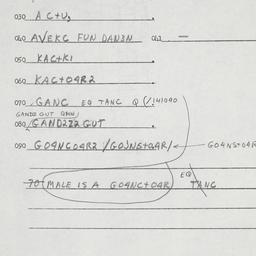 030 A C+U3
040 AVEKC FUN DAN3N 063 —
050 KAC+K1
060 KAC+O4R2
070 GANC EQ TANC Q (/141090
GANDZ GUT
080 /GAND2ZZ GUT
090 GO4NCO4R2 /GO3NS+O4R/ ← GO4NS+O4R
70 (MALE IS A GO4NC+O4R) EQ TANC